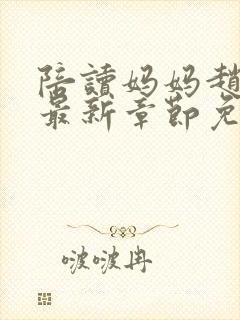 陪讀妈妈趙
最新章節免
啵啵冉